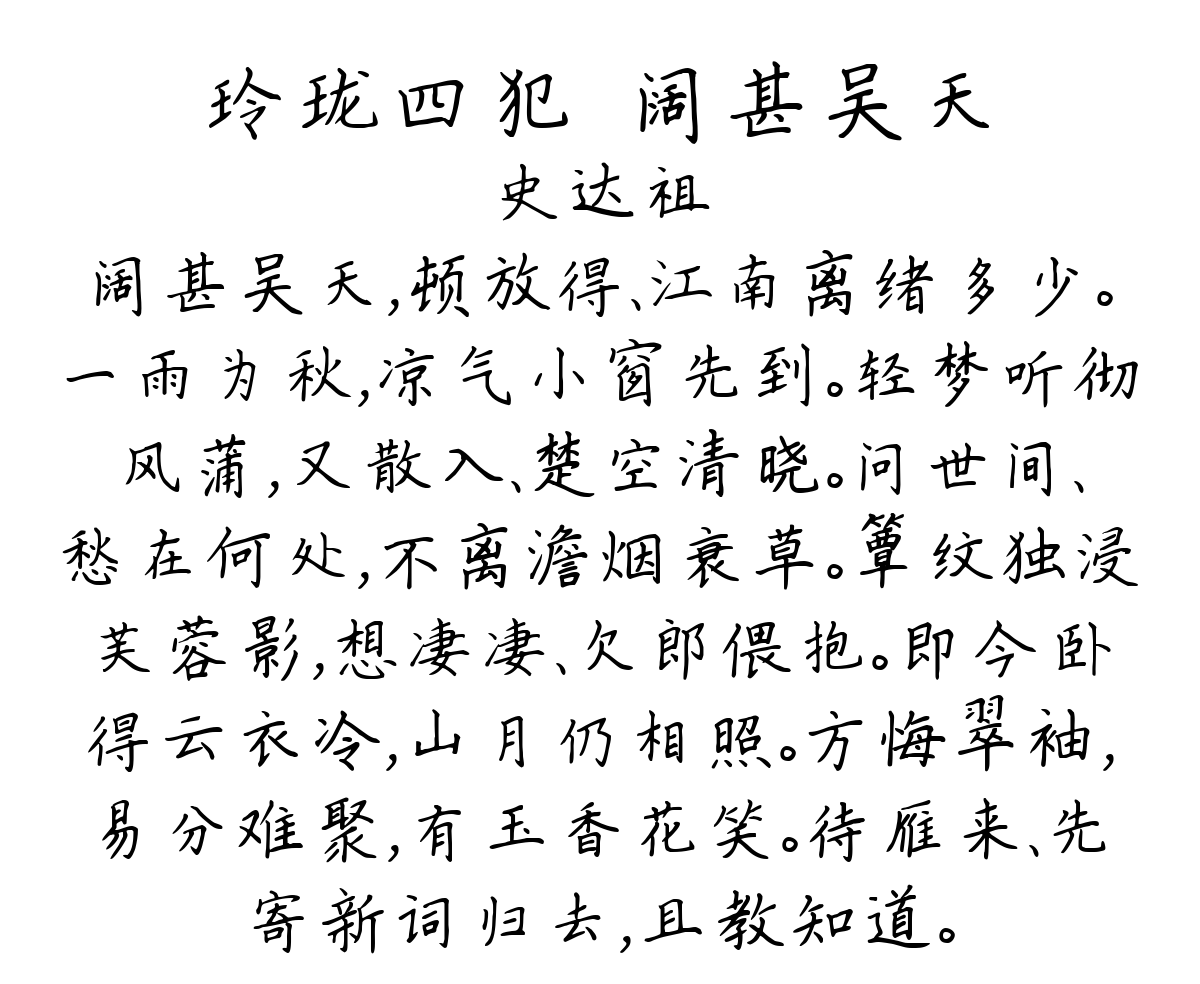 玲珑四犯 阔甚吴天
史达祖
阔甚吴天,顿放得、江南离绪多少。
一雨为秋,凉气小窗先到。轻梦听彻
风蒲,又散入、楚空清晓。问世间、
愁在何处,不离澹烟衰草。簟纹独浸
芙蓉影,想凄凄、欠郎偎抱。即今卧
得云衣冷,山月仍相照。方悔翠袖,
易分难聚,有玉香花笑。待雁来、先
寄新词归去,且教知道。